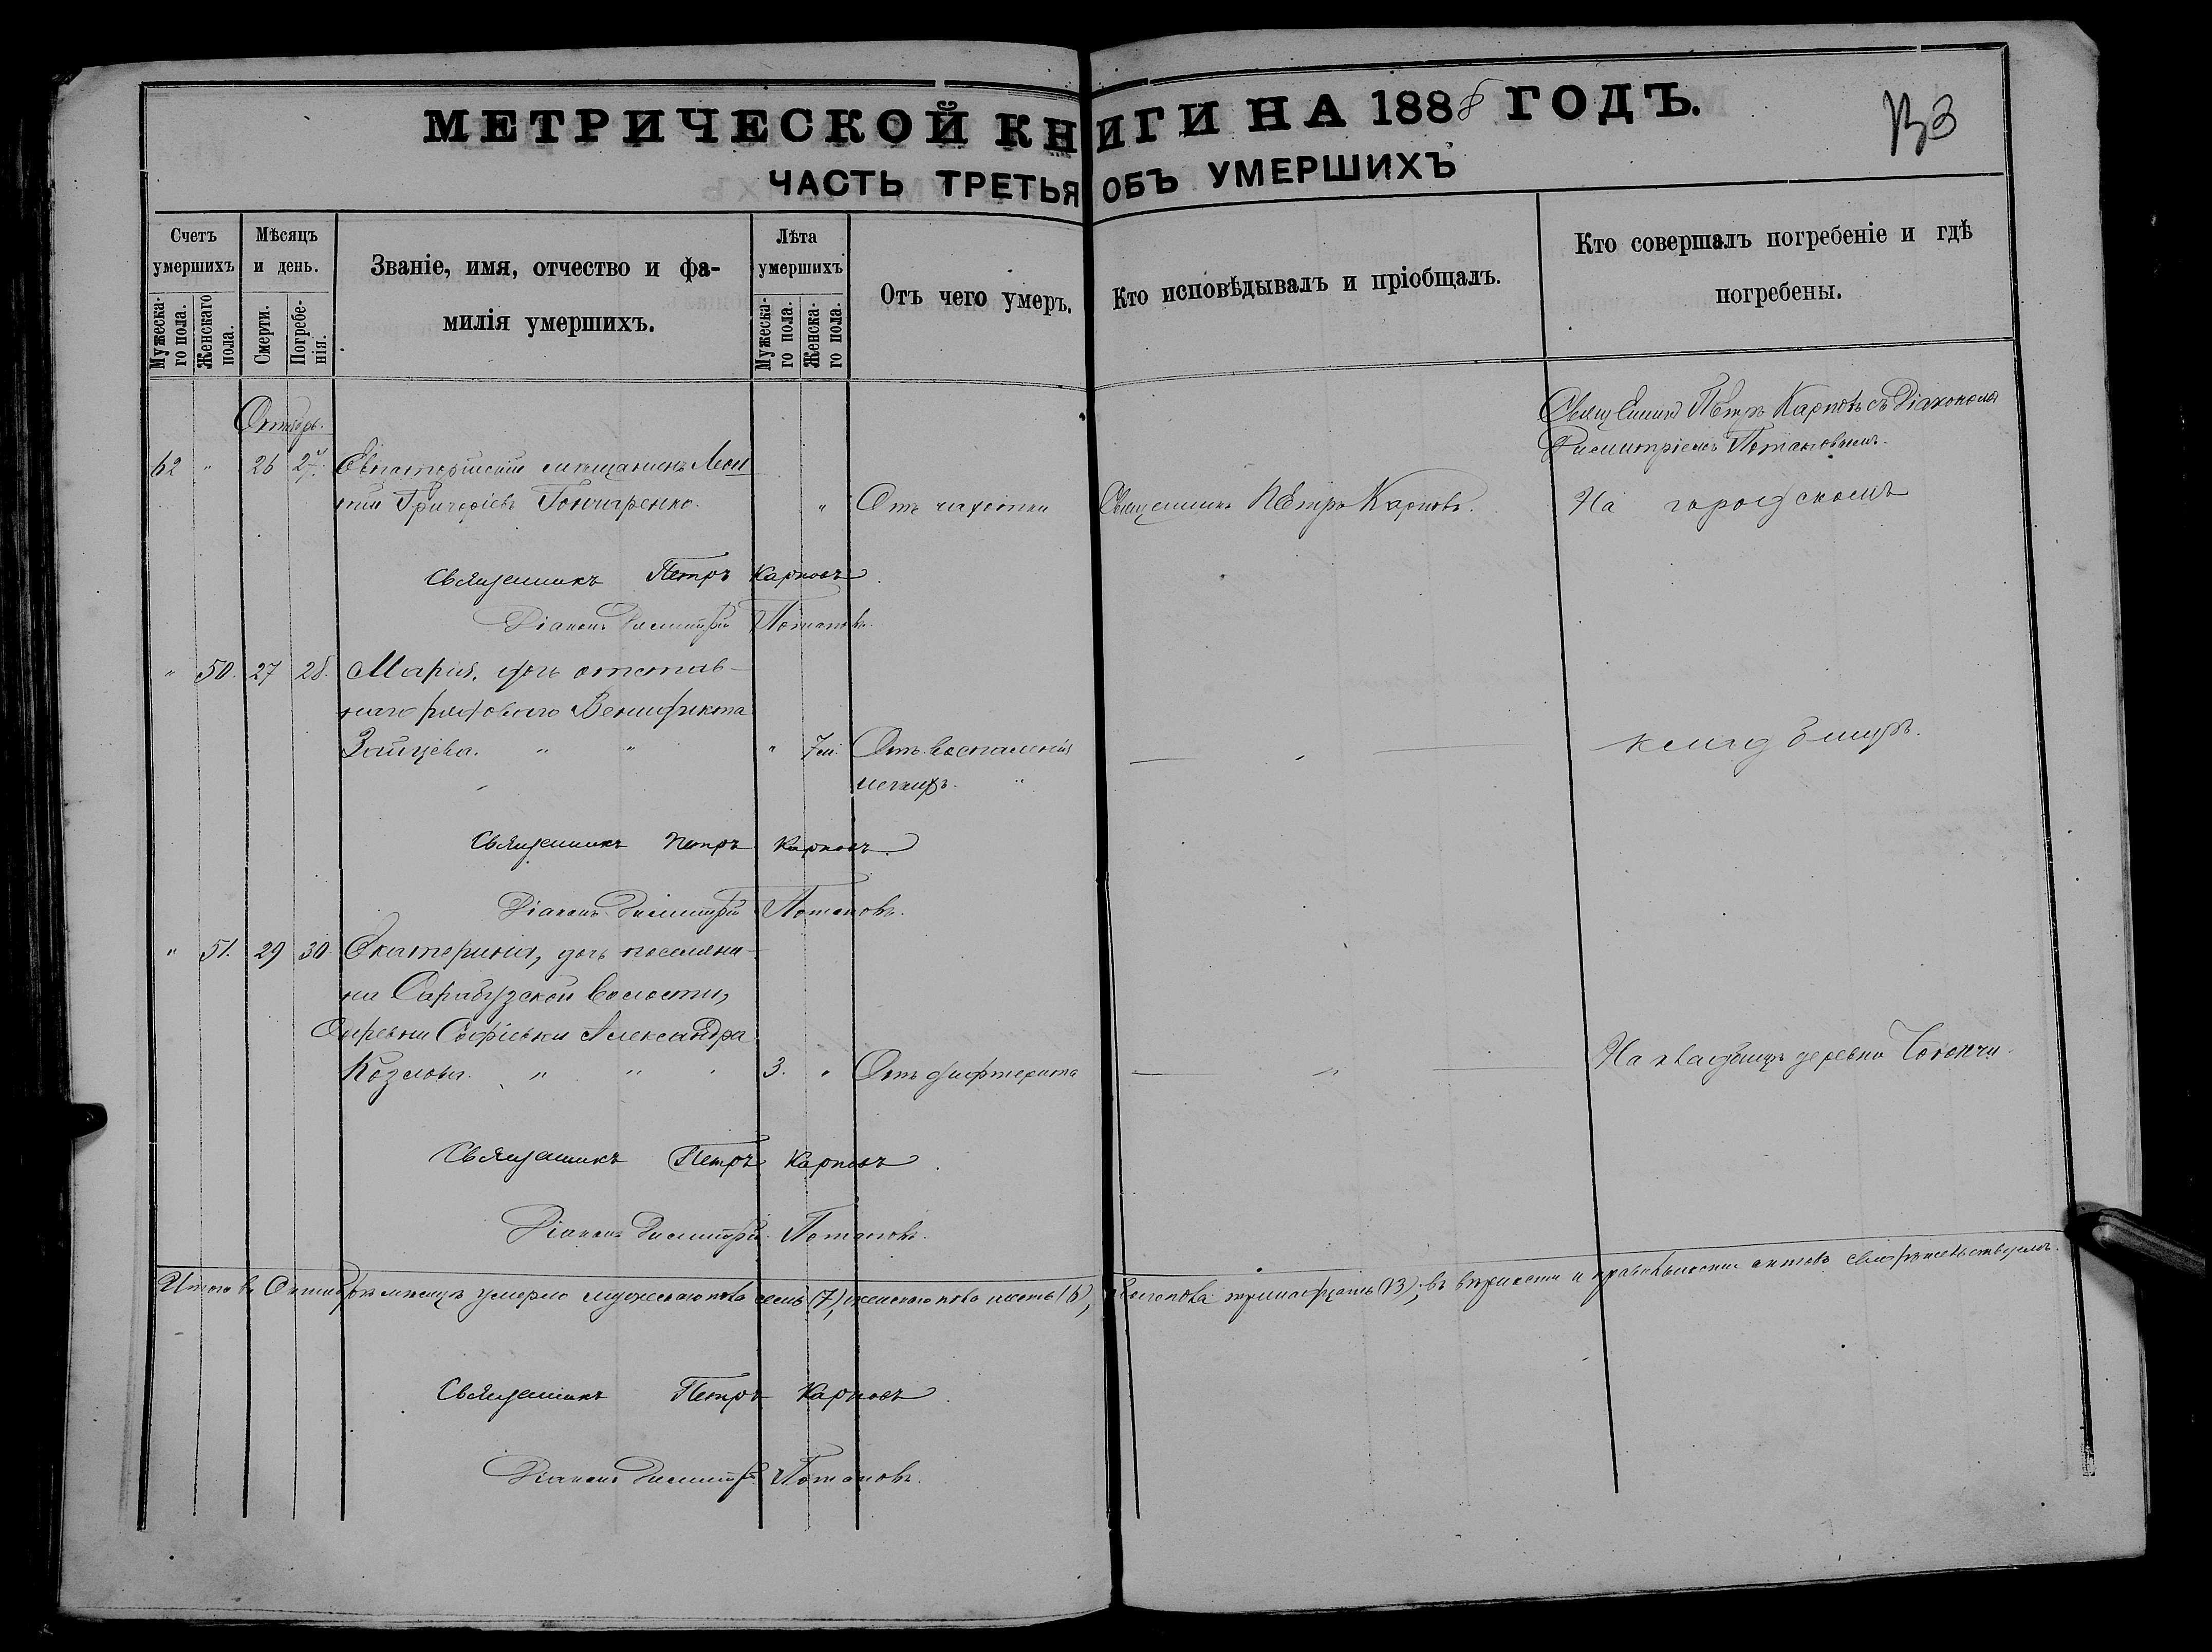 МЕТРИЧЕСКОЙ КНИГИ НА 1888 ГОДЪ.
ЧАСТЬ ТРЕТЬЯ ОБЪ УМЕРШИХЪ
Счетъ умершихъ
Мужескаго пола.
Женскаго пола.
Мѣсяцъ и день.
Смерти.
Погребенія.
Званіе, имя, отчество и фамилія умершихъ.
Лѣта умершихъ
Мужескаго пола.
Женскаго пола.
Отъ чего умеръ.
Кто исповѣдывалъ и пріобщалъ.
Кто совершалъ погребеніе и гдѣ погребены.
Октябрь.
Священникъ Петръ Карповъ съ Діакономъ
Димитріемъ Потаповымъ.
62 " 26 27. Евпаторійскій мѣщанинъ Леон
тій Григоріевъ Гончаренко. " Отъ чахотки Священникъ Петръ Карповъ. На городскомъ
Священникъ Петръ Карповъ.
Діаконъ Димитрій Потаповъ.
" 50. 27 28. Марія, дочь отстав-
наго рядового Венидикта
Зайцева. " " " 7м. Отъ воспаленія — " — кладбищѣ.
легкихъ. "
Священникъ Петръ Карповъ.
Діаконъ Димитрій Потаповъ.
" 51. 29 30 Екатерина, дочь поселяни-
на Сарабузской волости,
деревни Софіевки Александра
Козлова. " " " 3. " Отъ дифтерита — " — На кладбищѣ деревни
Священникъ Петръ Карповъ.
Діаконъ Димитрій Потаповъ.
Итого въ Октябрѣ мѣсяцѣ умерло мужескаго пола семь (7), женскаго пола шесть (6), обоего пола тринадцать (13); въ вѣрности и правильности актовъ свидѣтельствуемъ.
Священникъ Петръ Карповъ.
Діаконъ Димитрій Потаповъ.